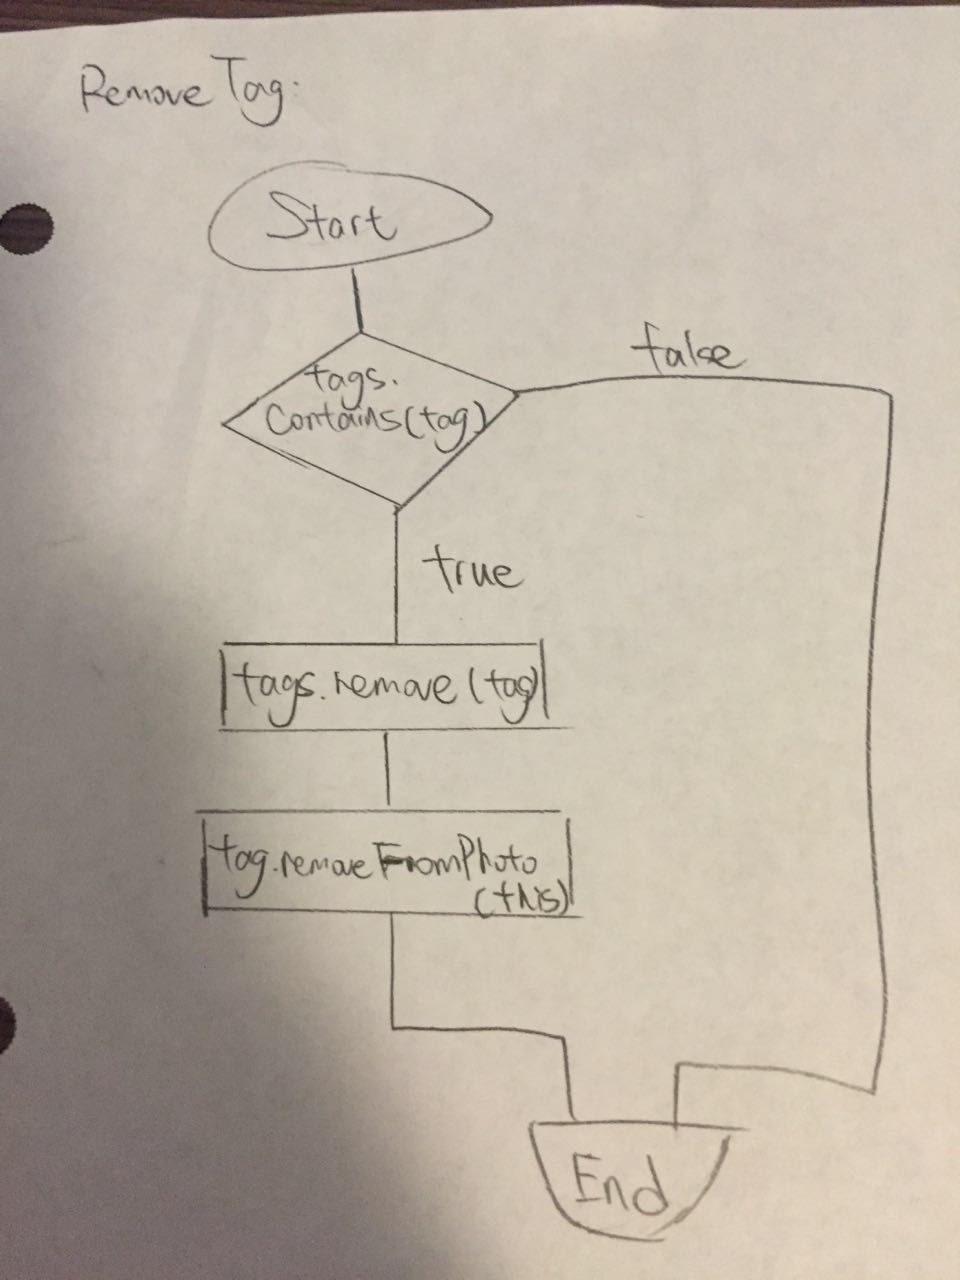 Remove Tag:
Start
tags.
Contains(tag)
false
true
tags.remove(tag)
tag.removeFromPhoto
(this)
End